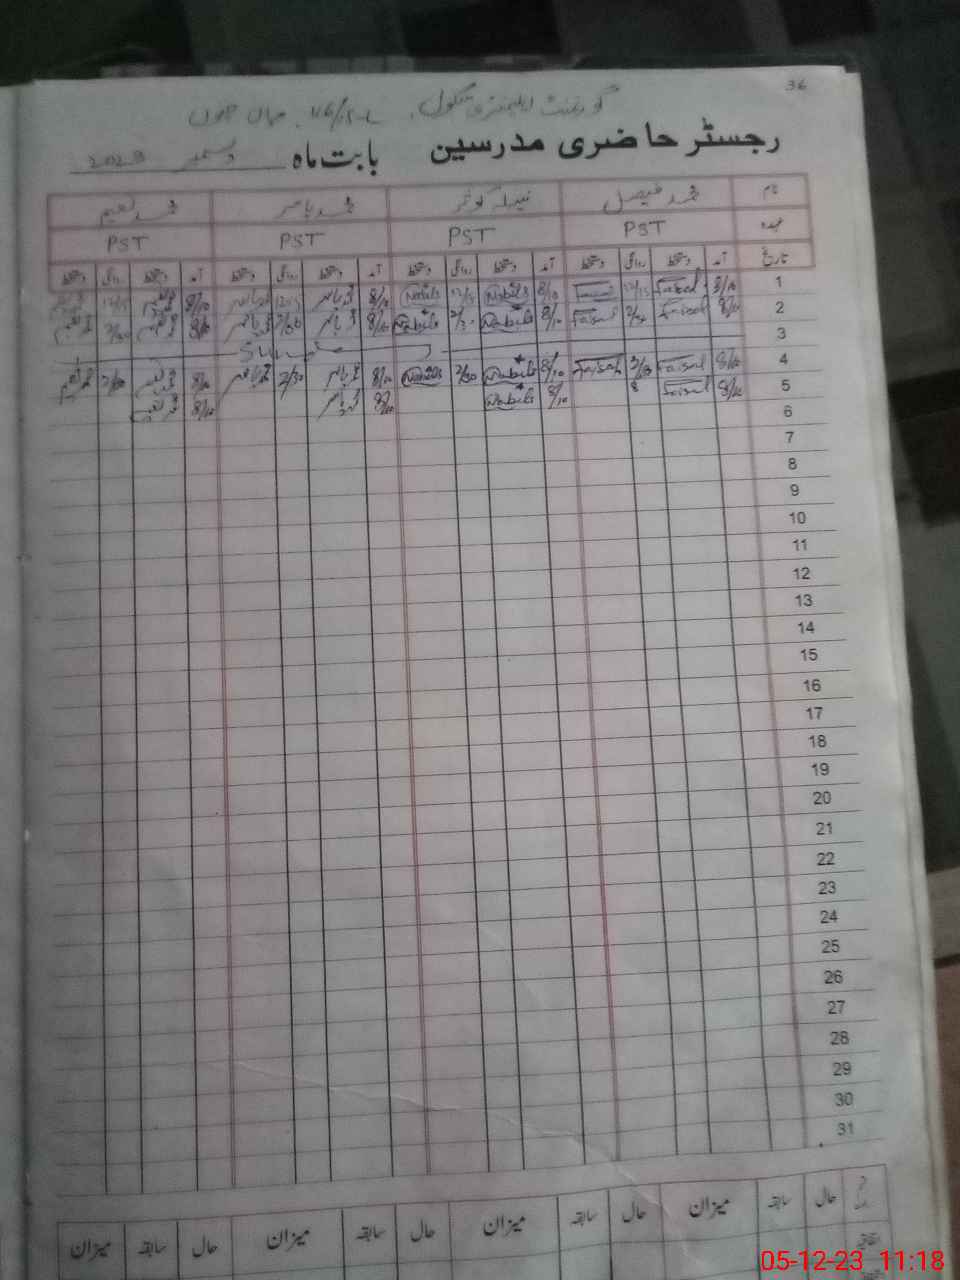 36
گورنمنٹ ایلیمنٹری سکول
رجسٹر حاضری مدرسین بابت ماہ دسمبر 2023
نام محمد فیصل نبیلہ کوثر محمد یاسر محمد نعیم
عہدہ PST PST PST PST
تاریخ آمد دستخط روانگی دستخط آمد دستخط روانگی دستخط آمد دستخط روانگی دستخط آمد دستخط روانگی دستخط
1 8/10 Faisal 12/15 Faisal 8/10 Nabila 12/15 Nabila 8/10 12/15 8/10 12/15
2 8/10 Faisal 2/30 Faisal 8/10 Nabila 2/30 Nabila 8/10 2/30 8/10 2/30
3 Sunday
4 8/10 Faisal 2/30 Faisal 8/10 Nabila 2/30 Nabila 8/10 2/30 8/10 2/30
5 8/10 Faisal 8 8/10 Nabila 8/10 8/10
6
7
8
9
10
11
12
13
14
15
16
17
18
19
20
21
22
23
24
25
26
27
28
29
30
31
حال سابقہ میزان حال سابقہ میزان حال سابقہ میزان حال سابقہ میزان
اتفاقیہ
05-12-23 11:18